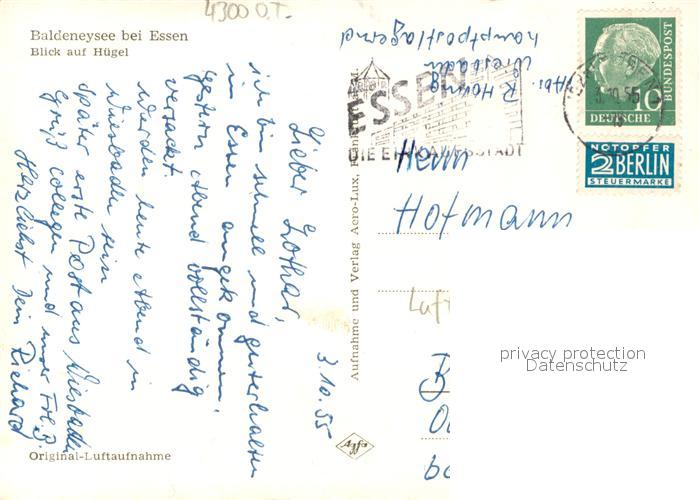 4300 O.T.
Baldeneysee bei Essen
Blick auf Hügel
3.10.55
Lieber Lothar,
ich bin schnell und guterhalten
in Essen angekommen,
gestern Abend vollständig
versackt.
Werden heute Abend in
Wiesbaden sein
später erste Post aus Wiesbaden
Gruß Collegen und unser Frl. B.
Herzlichst Dein Richard
Original-Luftaufnahme
Aufnahme und Verlag Aero-Lux, Frankfurt
Agfa
Abs.
R. Honig
Wiesbaden
hauptpostlagernd
ESSEN
DIE EINKAUFSSTADT
3.10.55
10
DEUTSCHE
BUNDESPOST
NOTOPFER
2 BERLIN
STEUERMARKE
Herrn
Hofmann
Luft
B
privacy protection
Datenschutz